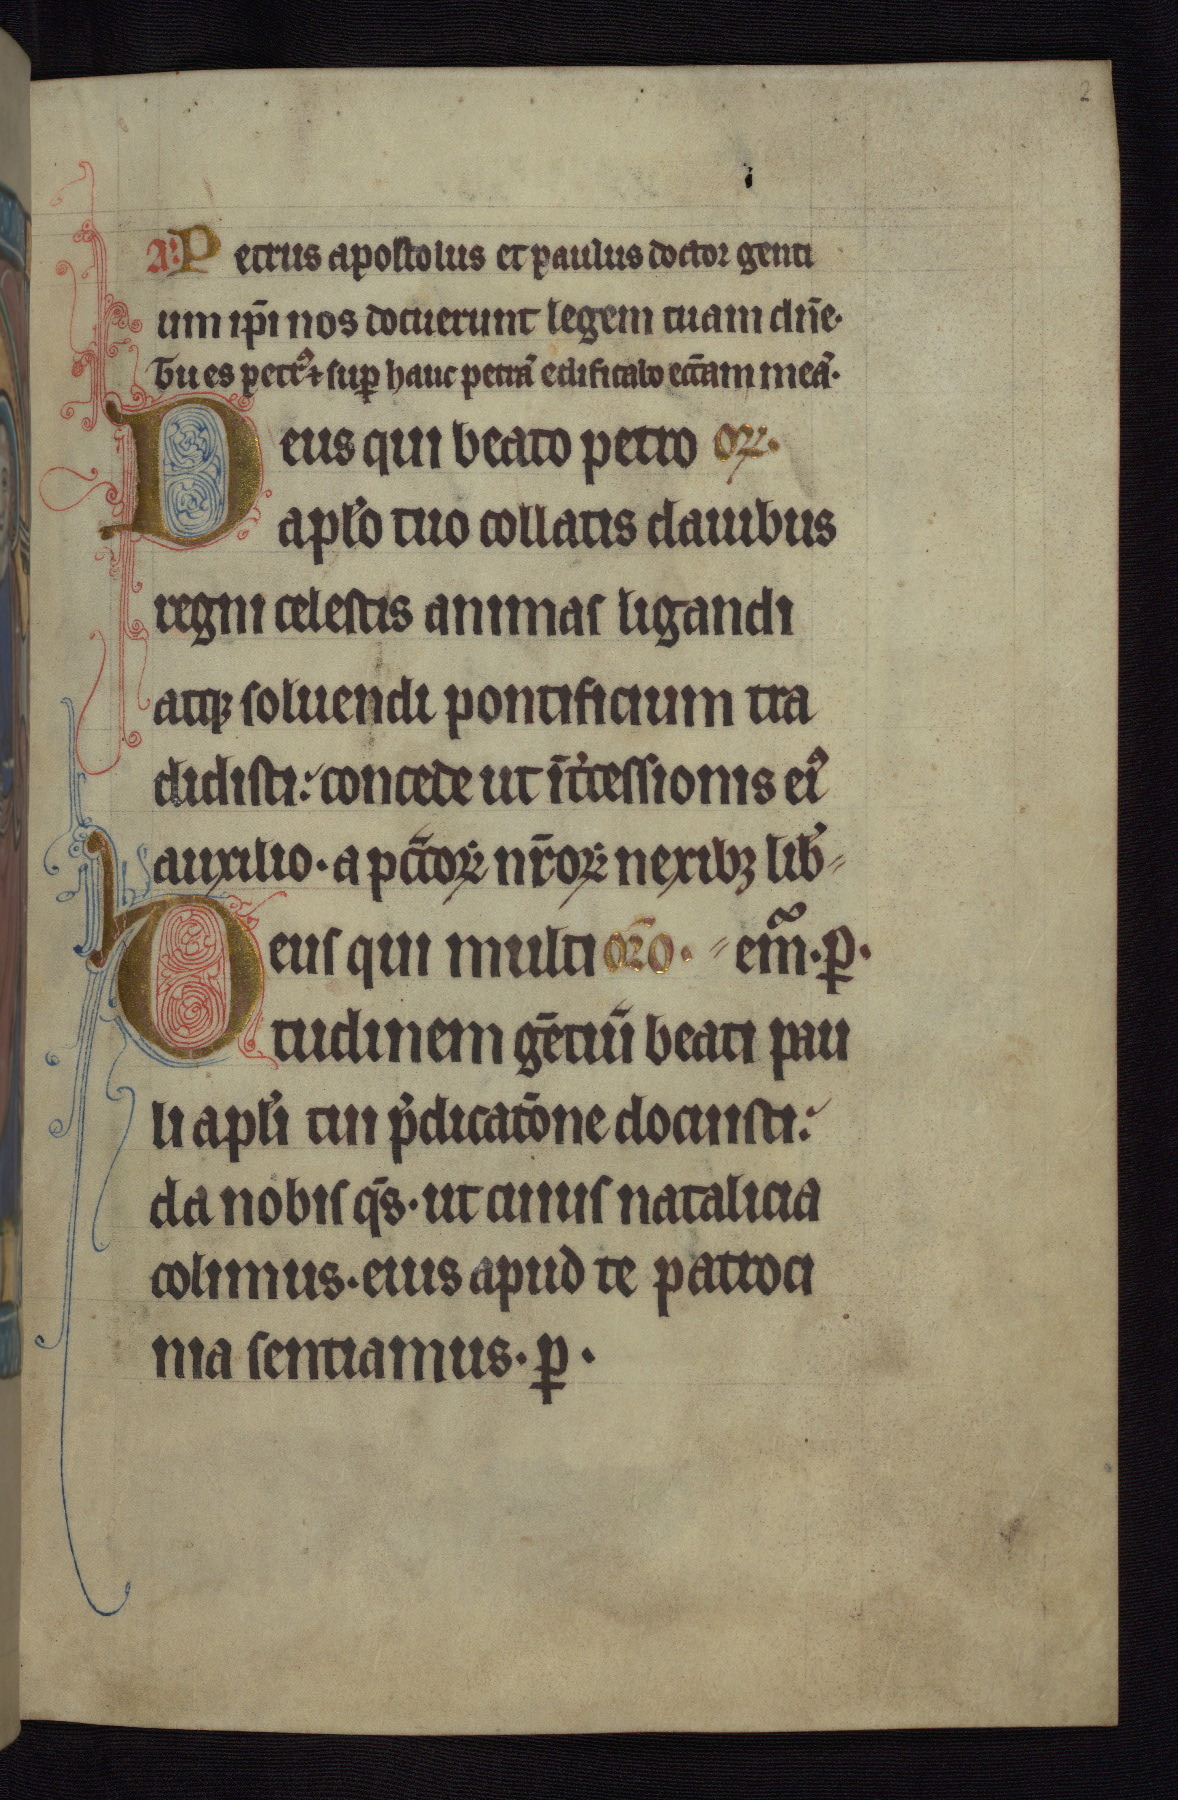 2
A: Petrus apostolus et paulus doctor genti
um ip̄i nos docuerunt legem tuam dn̄e·
Tu es petrꝰ ⁊ suꝑ hanc petrā edificabo ecc̄am meā·
Deus qui beato petro or̄·
apl̓o tuo collatis clauibus
regni celestis animas ligandi
atqꝫ soluendi pontificium tra
didisti: concede ut īt̓cessionis eiꝰ
auxilio· a pcc̄oꝝ nr̄oꝝ nexibꝫ lib̓
Deus qui multi or̄o· em̃·ꝑ·
tudinem gētiū beati pau
li apl̓i tui p̄dicatōne docuisti:
da nobis qs̄· ut cuius natalicia
colimus· eius apud te patroci
nia sentiamus· ꝑ·